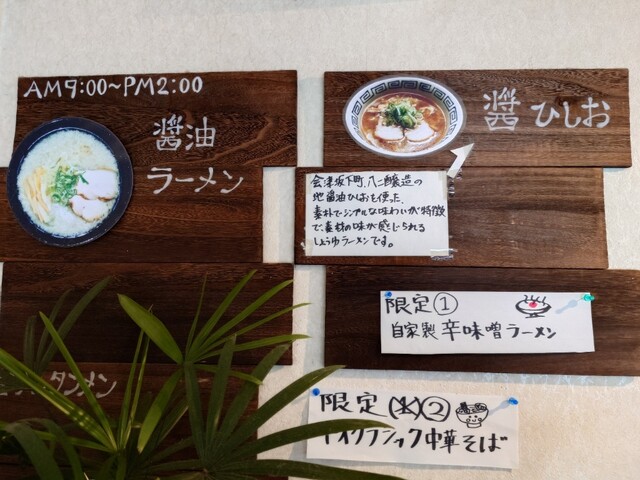 AM9:00~PM2:00
醤油
ラーメン
醤 ひしお
会津坂下町、八二醸造の
地醤油ひしおを使った、
素朴でシンプルな味わいが特徴
で、素材の味が感じられる
しょうゆラーメンです。
限定①
自家製 辛味噌ラーメン
タンメン
限定 (水)②
クラシック中華そば